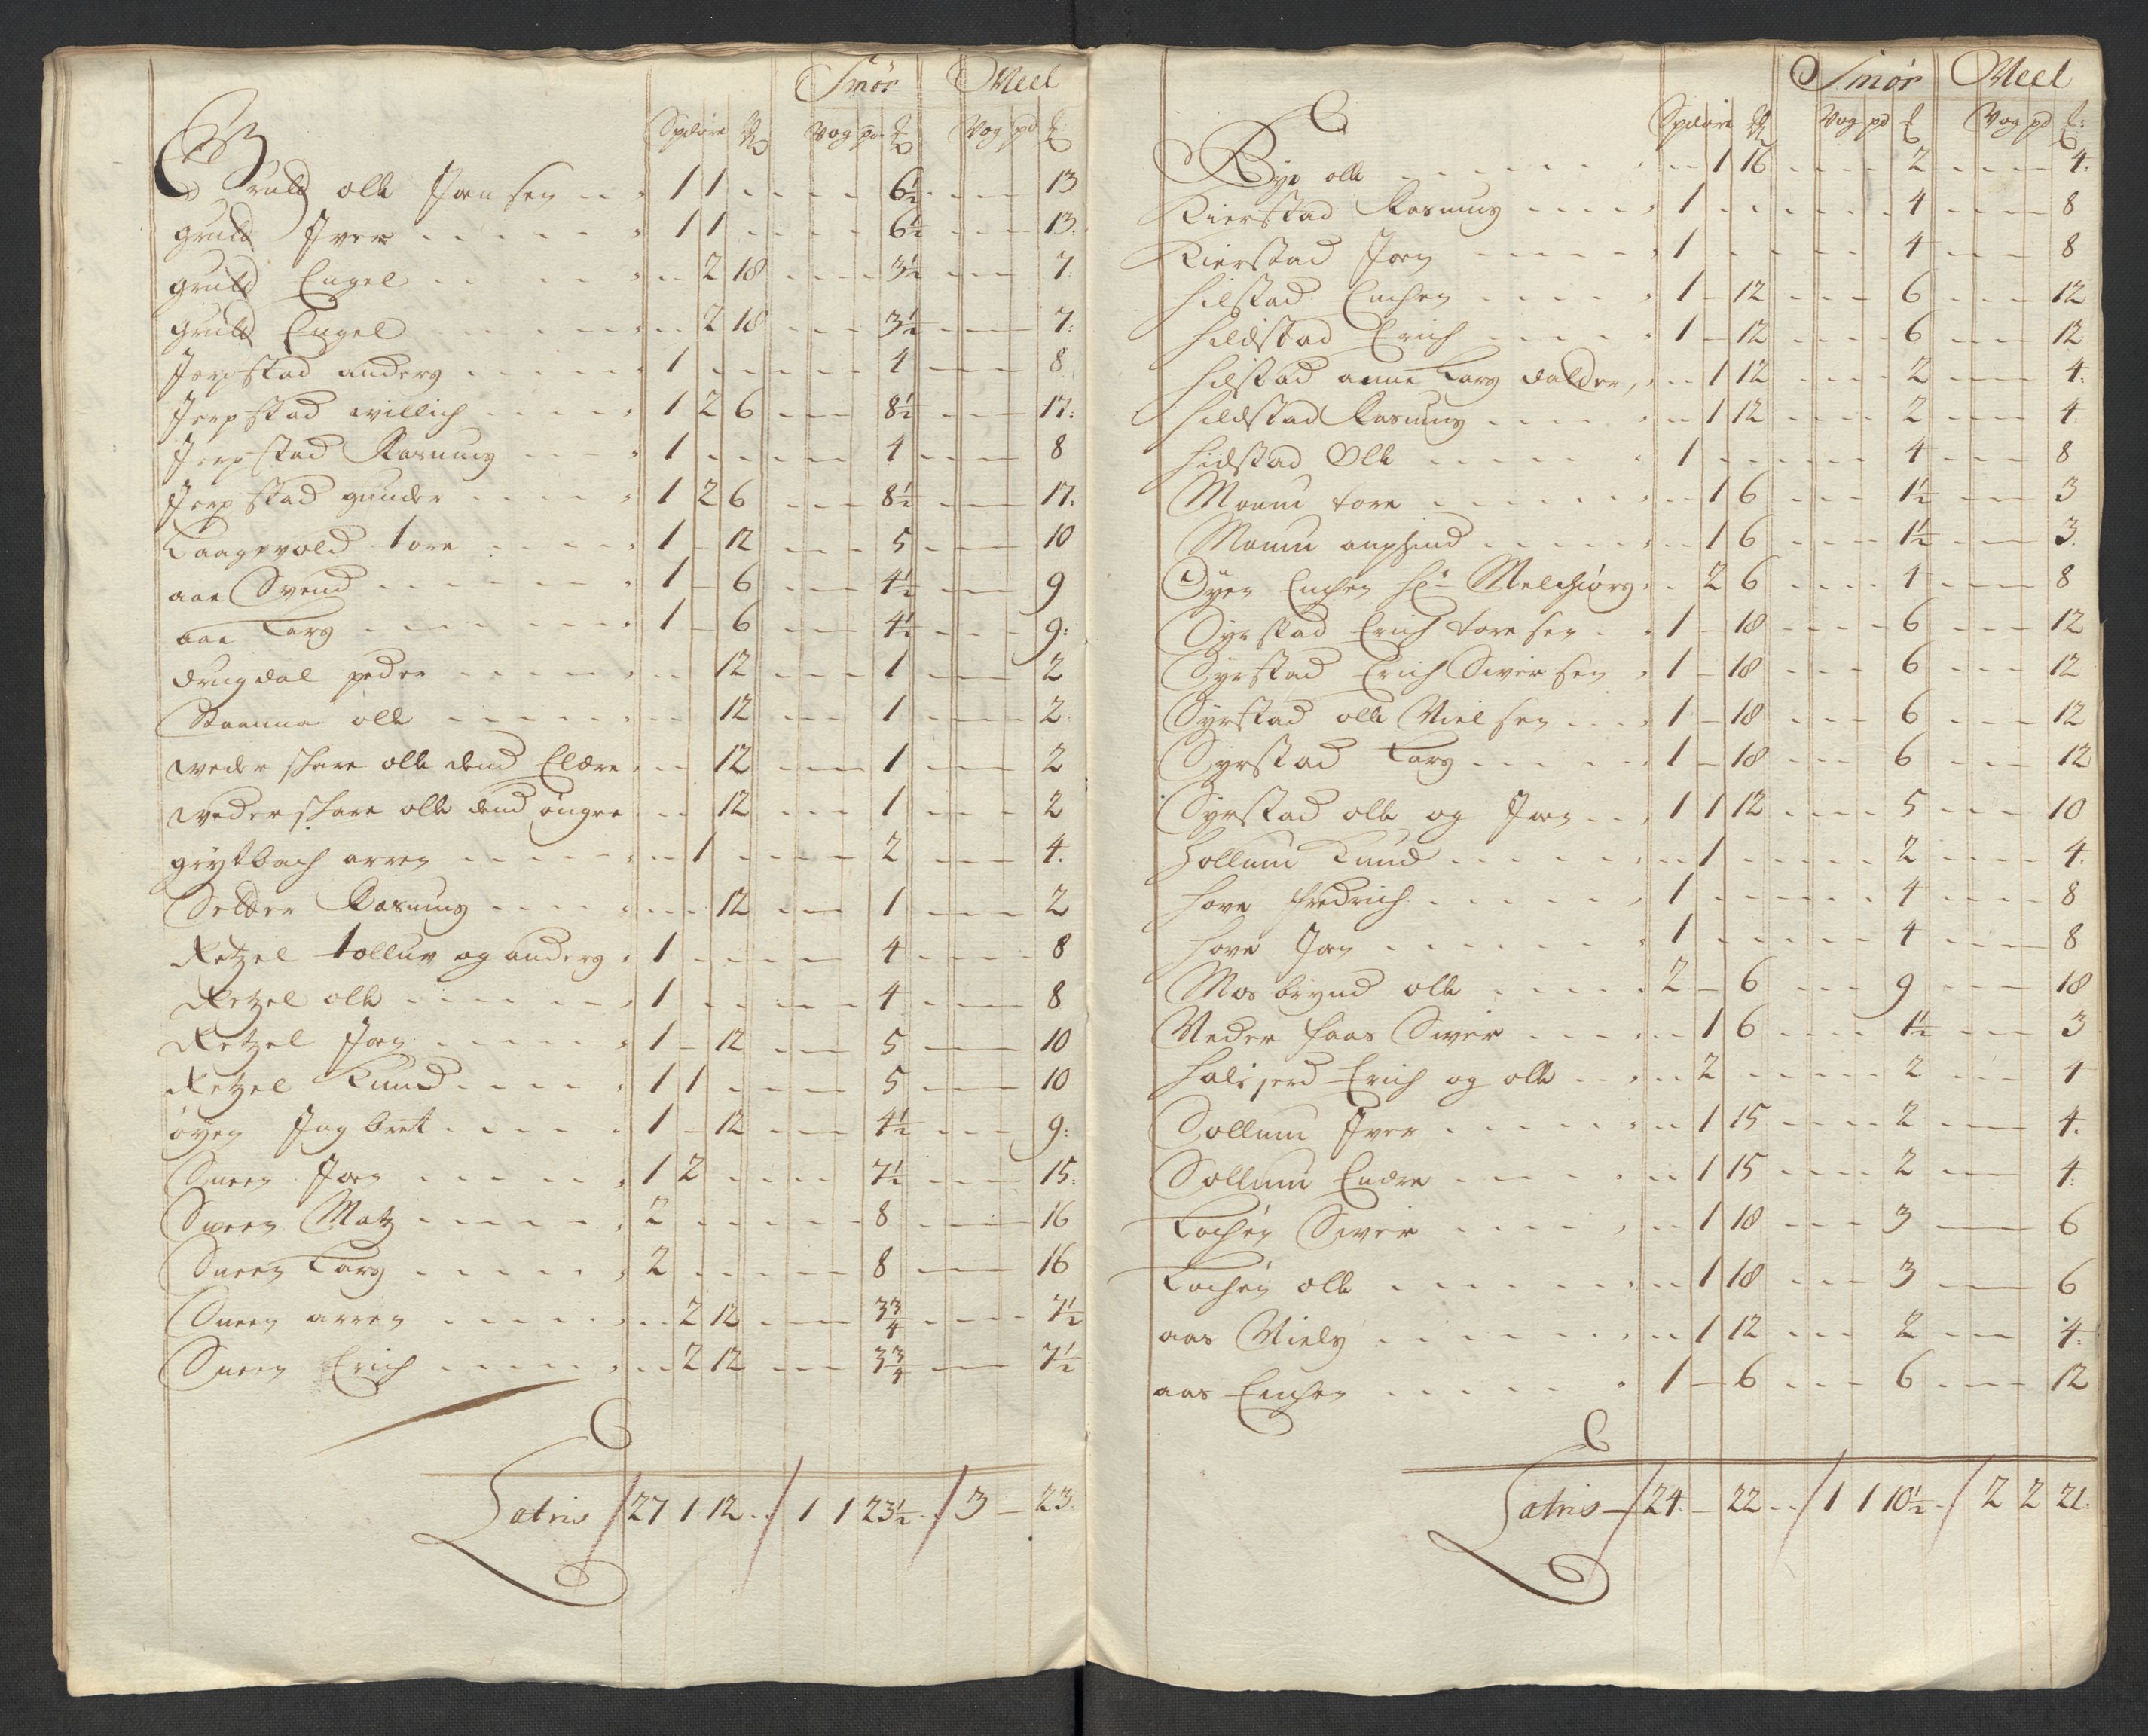 Smör Meel
Spd öre ℔ Vog pd ℔ Vog pd ℔
Gruld olle Joensen 1 1 6½ 13
gruld Iver 1 1 6½ 13
gruld Engel 2 18 3½ 7
gruld Engel 2 18 3½ 7
Jerpstad anders 1 4 8
Jerpstad willich 1 2 6 8½ 17
Jerpstad Rasmus 1 4 8
Jerpstad gunder 1 2 6 8½ 17
Laagevold tore 1 - 12 5 10
aae Svend 1 - 6 4½ 9
aae Lars 1 - 6 4½ 9
drugdal peder 12 1 2
Staamna olle 12 1 2
weder share olle dend Eldre 12 1 2
weder share olle dend öngre 12 1 2
grytbach arren 1 2 4
Selder Rasmus 12 1 2
Retzel tolluv og anders 1 4 8
Retzel olle 1 4 8
Retzel Joen 1 - 12 5 10
Retzel Knud 1 1 5 10
öyen Ingbret 1 - 12 4½ 9
Sneen Joen 1 2 7½ 15
Sneen Matz 2 8 16
Sneen Lars 2 8 16
Sneen arren 2 12 3¾ 7½
Sneen Erich 2 12 3¾ 7½
Latris / 27 1 12 / 1 1 23½ / 3 - 23
Smör Meel
Spd öre ℔ Vog pd ℔ Vog pd ℔
Bye olle 1 16 2 4
Kierstad Rasmus 1 4 8
Kierstad Joen 1 4 8
hilstad Enchen 1 - 12 6 12
hildstad Erich 1 - 12 6 12
hilstad anne Lars datder 1 12 2 4
hildstad Rasmus 1 12 2 4
hidstad Olle 1 4 8
Moum tore 1 6 1½ 3
Moum anphind 1 6 1½ 3
Öyen Enchen Hr Melchiors 2 6 4 8
Syrstad Erich toresen 1 - 18 6 12
Syrstad Erich Siversen 1 - 18 6 12
Syrstad olle Nielsen 1 - 18 6 12
Syrstad Lars 1 - 18 6 12
Syrstad olle og Joen 1 1 12 5 10
hollum Knud 1 2 4
hove fredrich 1 4 8
hove Joen 1 4 8
Mosbrynd olle 2 - 6 9 18
Neder haas Siver 1 6 1½ 3
Erich og olle 2 2 4
Sollum Iver 1 15 2 4
Sollum Endre 1 15 2 4
Lochen Siver 1 18 3 6
Lochen olle 1 18 3 6
aas Niels 1 12 2 4
aas Enchen 1 - 6 6 12
Latris - / 24 - 22 / 1 1 10½ / 2 2 21